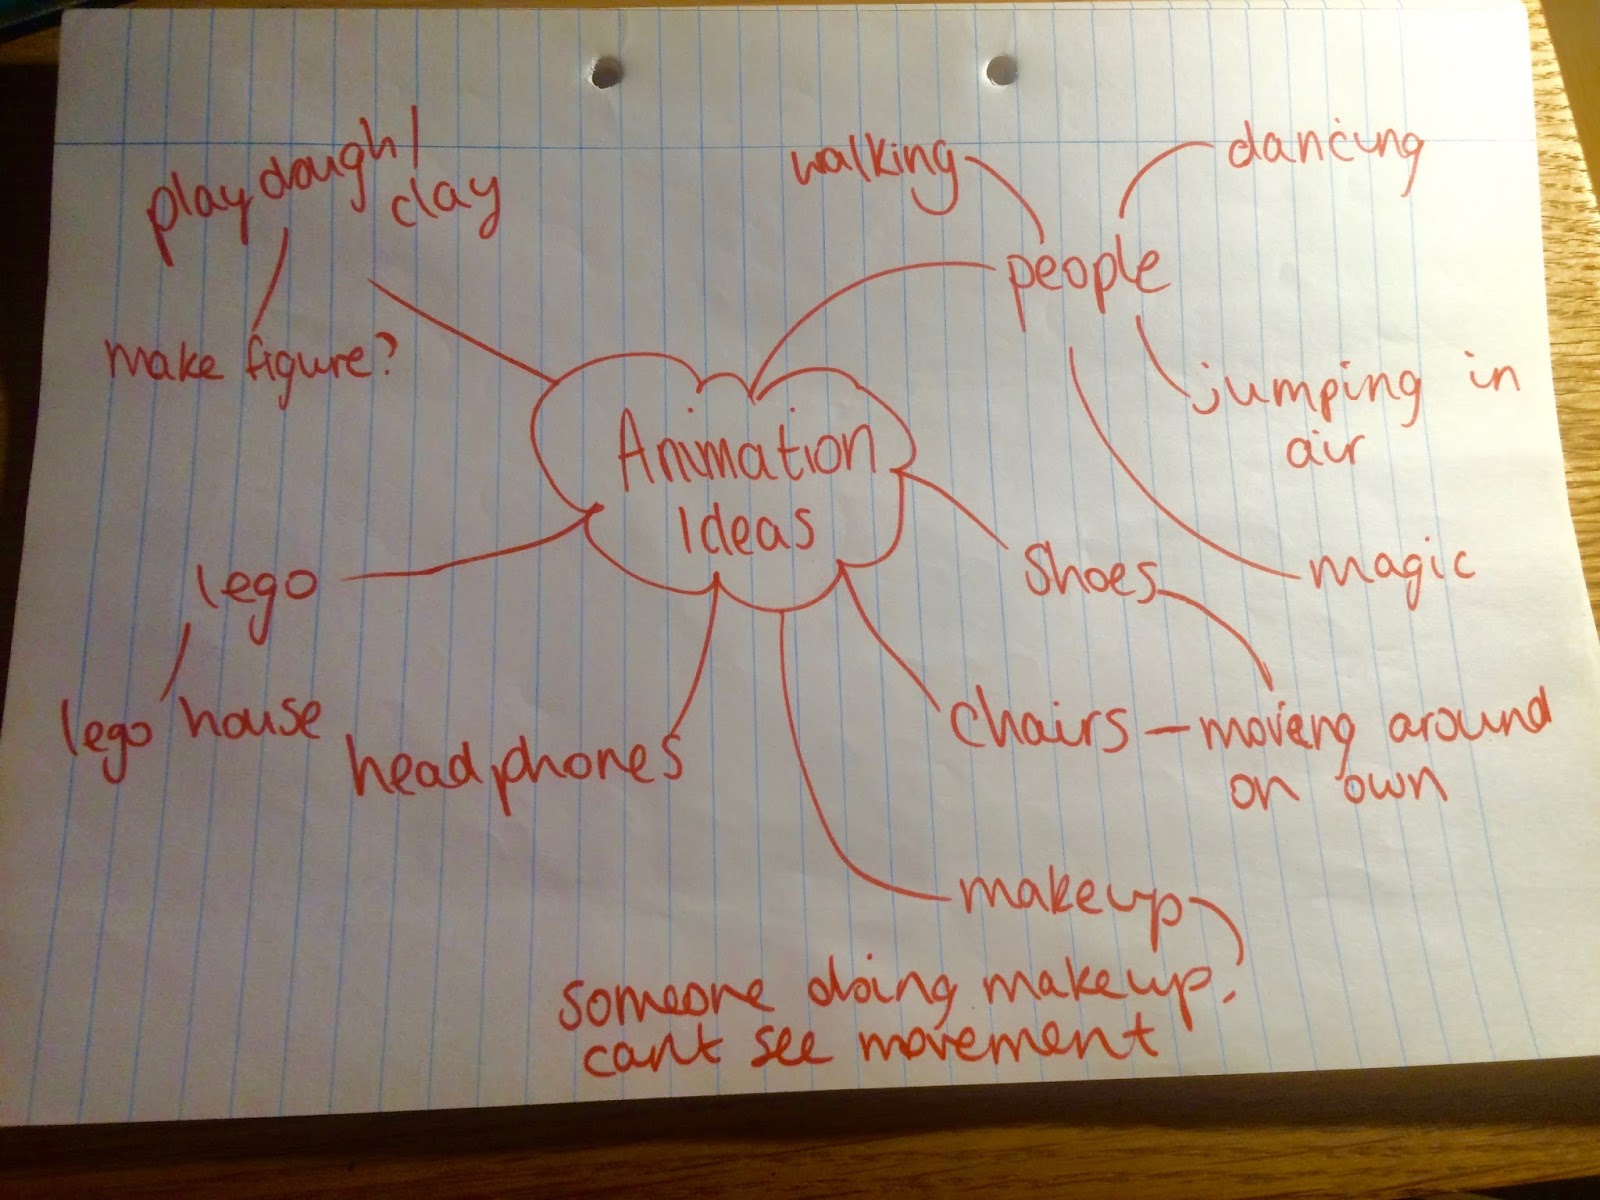 Animation
Ideas
playdough/
clay
make figure?
walking
dancing
people
jumping in
air
magic
shoes
chairs - moving around
on own
makeup
someone doing makeup.
cant see movement
headphones
lego
lego house